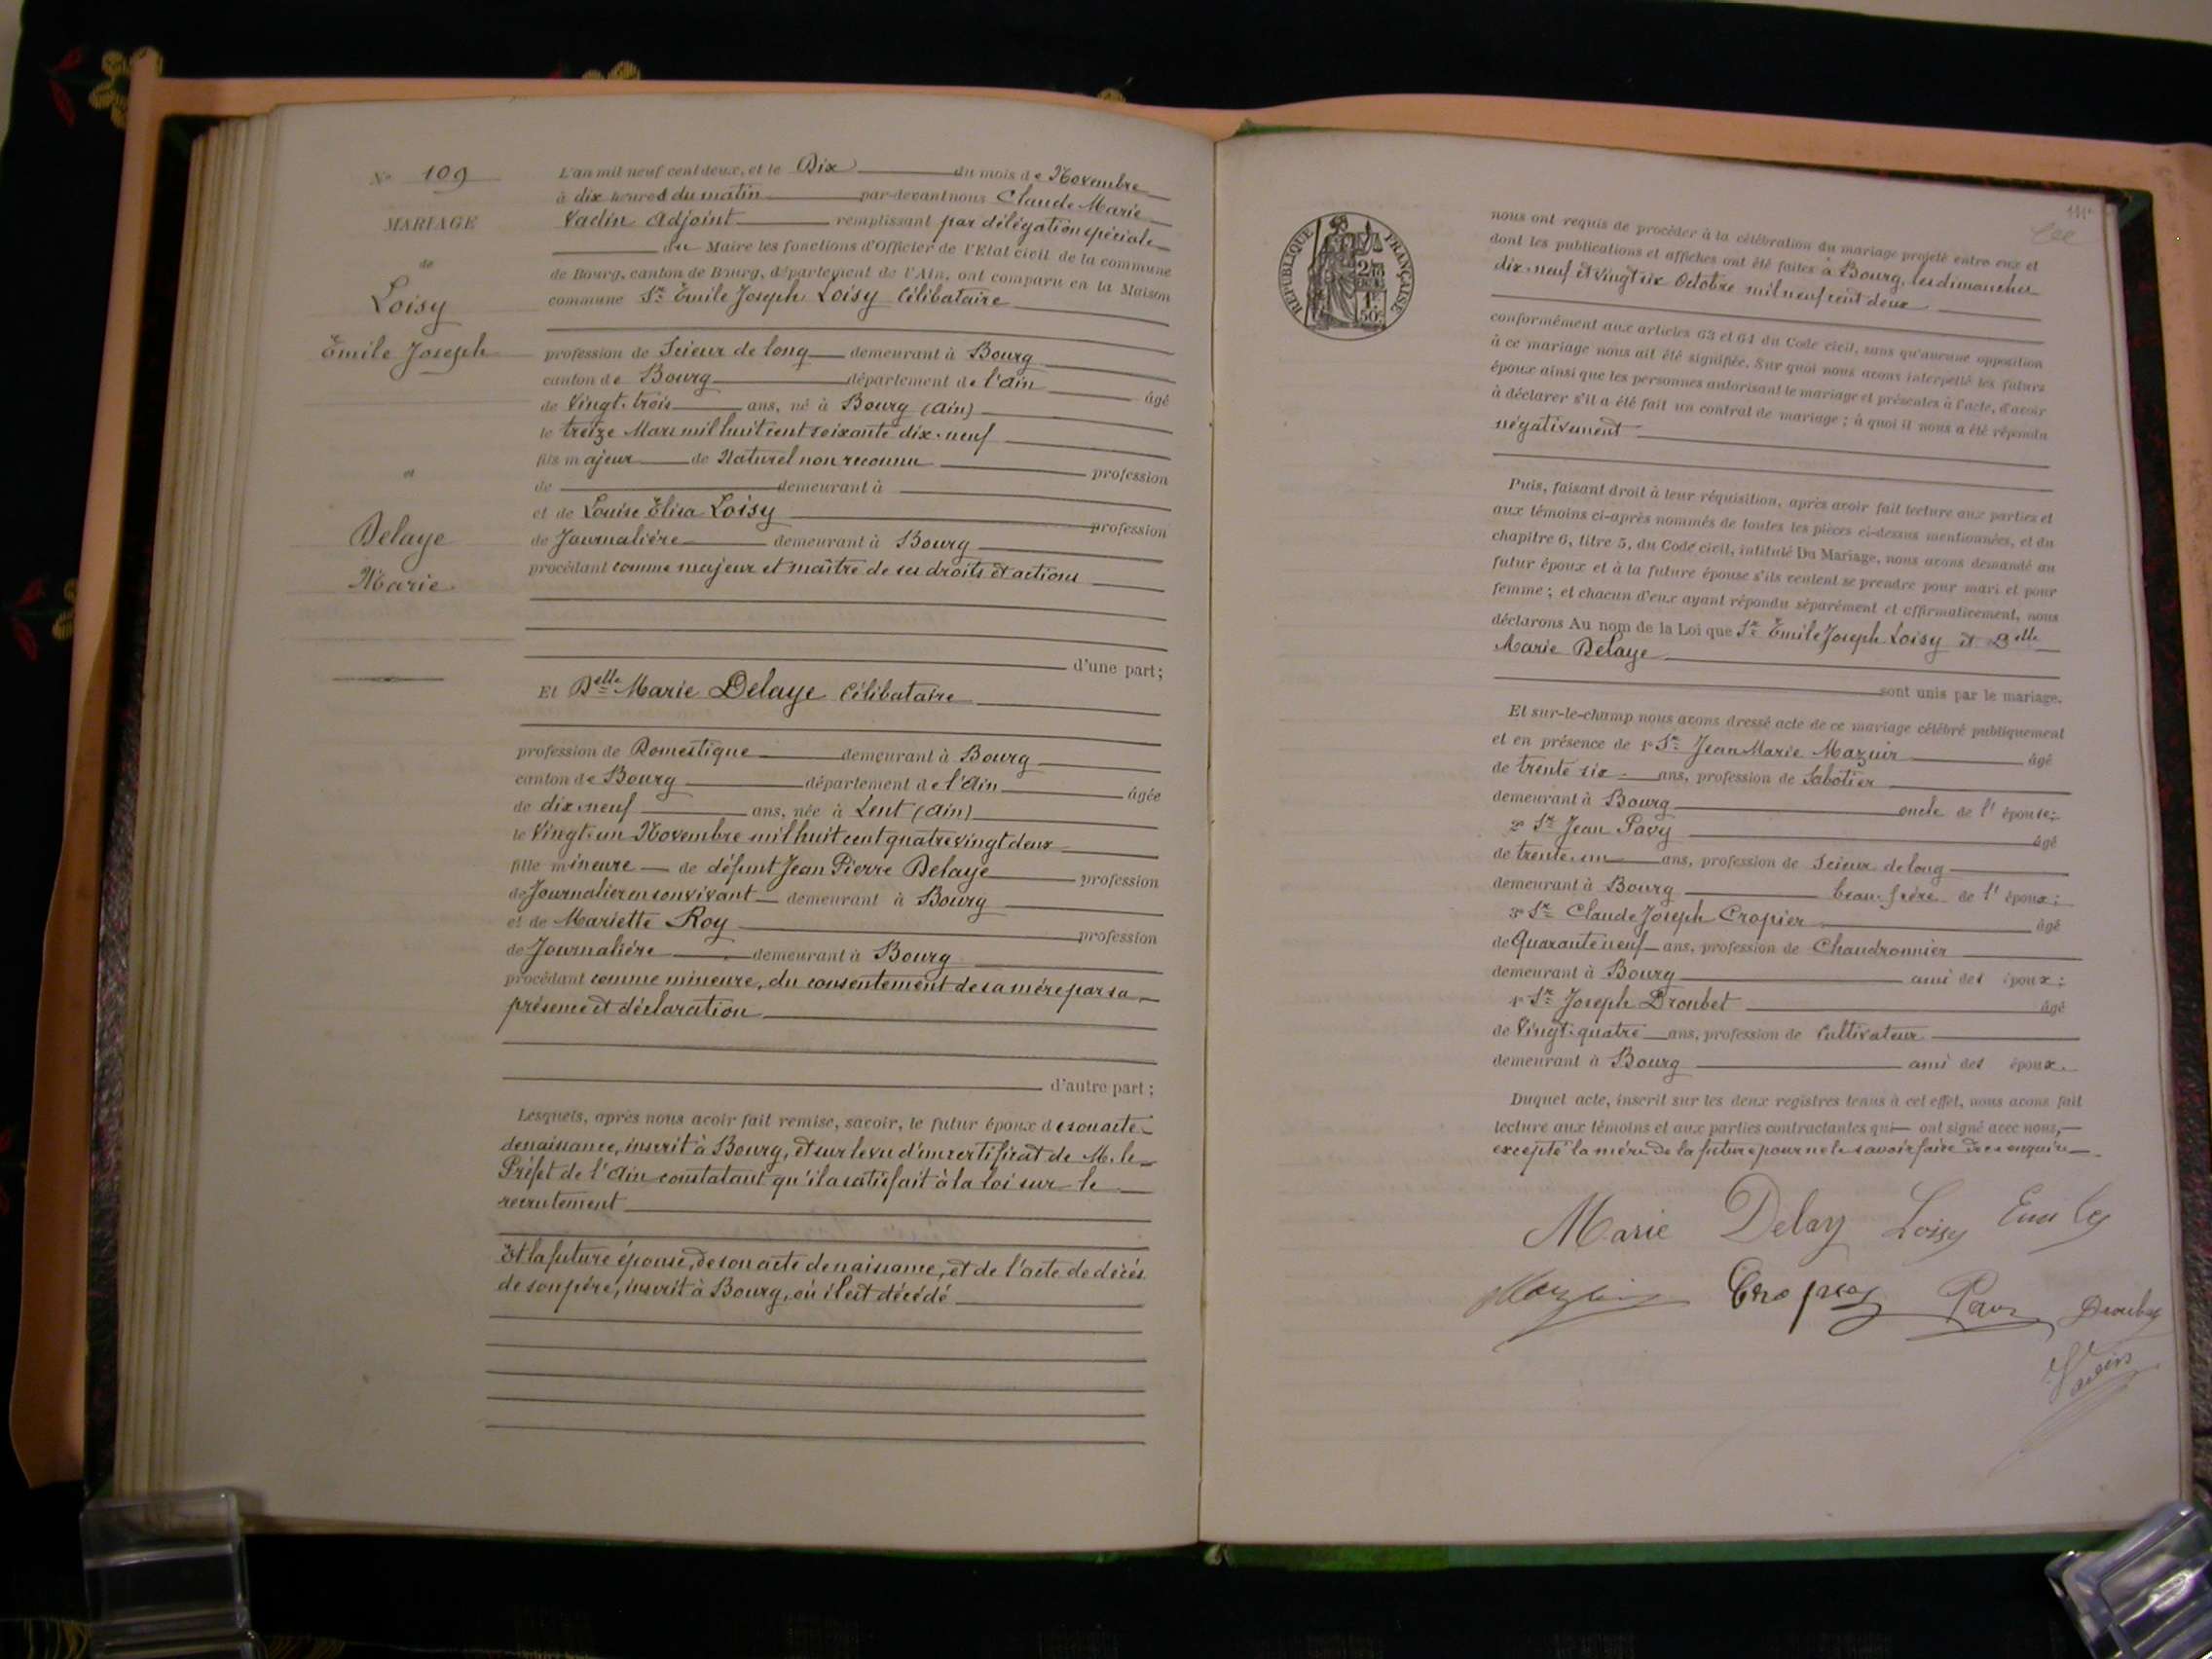 N° 109
MARIAGE
de
Loisy
Émile Joseph
et
Delaye
Marie
L'an mil neuf cent deux, et le Dix du mois de Novembre
à dix heures du matin par-devant nous Claude Marie
Vadin Adjoint remplissant par délégation spéciale
du Maire les fonctions d'Officier de l'Etat civil de la commune
de Bourg, canton de Bourg, département de l'Ain, ont comparu en la Maison
commune Sr Émile Joseph Loisy Célibataire
profession de Scieur de long demeurant à Bourg
canton de Bourg département de l'Ain âgé
de Vingt-trois ans, né à Bourg (Ain)
le treize Mars mil huit cent soixante dix-neuf
fils majeur de Naturel non reconnu profession
de demeurant à
et de Louise Élisa Loisy profession
de Journalière demeurant à Bourg
procédant comme majeur et maître de ses droits et actions
d'une part;
Et Delle Marie Delaye Célibataire
profession de Domestique demeurant à Bourg
canton de Bourg département de l'Ain âgée
de dix-neuf ans, née à Lent (Ain)
le Vingt-un Novembre mil huit cent quatre vingt deux
fille mineure de défunt Jean Pierre Delaye profession
de Journalier en son vivant demeurant à Bourg
et de Mariette Roy profession
de Journalière demeurant à Bourg
procédant comme mineure, du consentement de sa mère par sa
présence et déclaration
d'autre part;
Lesquels, après nous avoir fait remise, savoir, le futur époux de son acte
de naissance, inscrit à Bourg, et sur le vu d'un certificat de M. le
Préfet de l'Ain constatant qu'il a satisfait à la loi sur le
recrutement
Et la future épouse, de son acte de naissance, et de l'acte de décès
de son père, inscrit à Bourg, où il est décédé
RÉPUBLIQUE FRANÇAISE
nous ont requis de procéder à la célébration du mariage projeté entre eux et
dont les publications et affiches ont été faites à Bourg, les dimanches
dix-neuf et Vingt six Octobre mil neuf cent deux
conformément aux articles 63 et 64 du Code civil, sans qu'aucune opposition
à ce mariage nous ait été signifiée. Sur quoi nous avons interpellé les futurs
époux ainsi que les personnes autorisant le mariage et présentes à l'acte, d'avoir
à déclarer s'il a été fait un contrat de mariage; à quoi il nous a été répondu
négativement
Puis, faisant droit à leur réquisition, après avoir fait lecture aux parties et
aux témoins ci-après nommés de toutes les pièces ci-dessus mentionnées, et du
chapitre 6, titre 5, du Code civil, intitulé Du Mariage, nous avons demandé au
futur époux et à la future épouse s'ils veulent se prendre pour mari et pour
femme; et chacun d'eux ayant répondu séparément et affirmativement, nous
déclarons Au nom de la Loi que Sr Émile Joseph Loisy et Delle
Marie Delaye
sont unis par le mariage.
Et sur-le-champ nous avons dressé acte de ce mariage célébré publiquement
et en présence de 1° Sr Jean Marie Mazuir âgé
de trente six ans, profession de Sabotier
demeurant à Bourg oncle de l'épouse;
2° Sr Jean Pavy âgé
de trente-un ans, profession de Scieur de long
demeurant à Bourg beau-frère de l'époux;
3° Sr Claude Joseph Cropier âgé
de Quarante neuf ans, profession de Chaudronnier
demeurant à Bourg ami des époux;
4° Sr Joseph Droubet âgé
de Vingt-quatre ans, profession de Cultivateur
demeurant à Bourg ami des époux.
Duquel acte, inscrit sur les deux registres tenus à cet effet, nous avons fait
lecture aux témoins et aux parties contractantes qui ont signé avec nous,
excepté la mère de la future pour ne le savoir faire de ce enquise
Marie Delay Loisy
Vadin